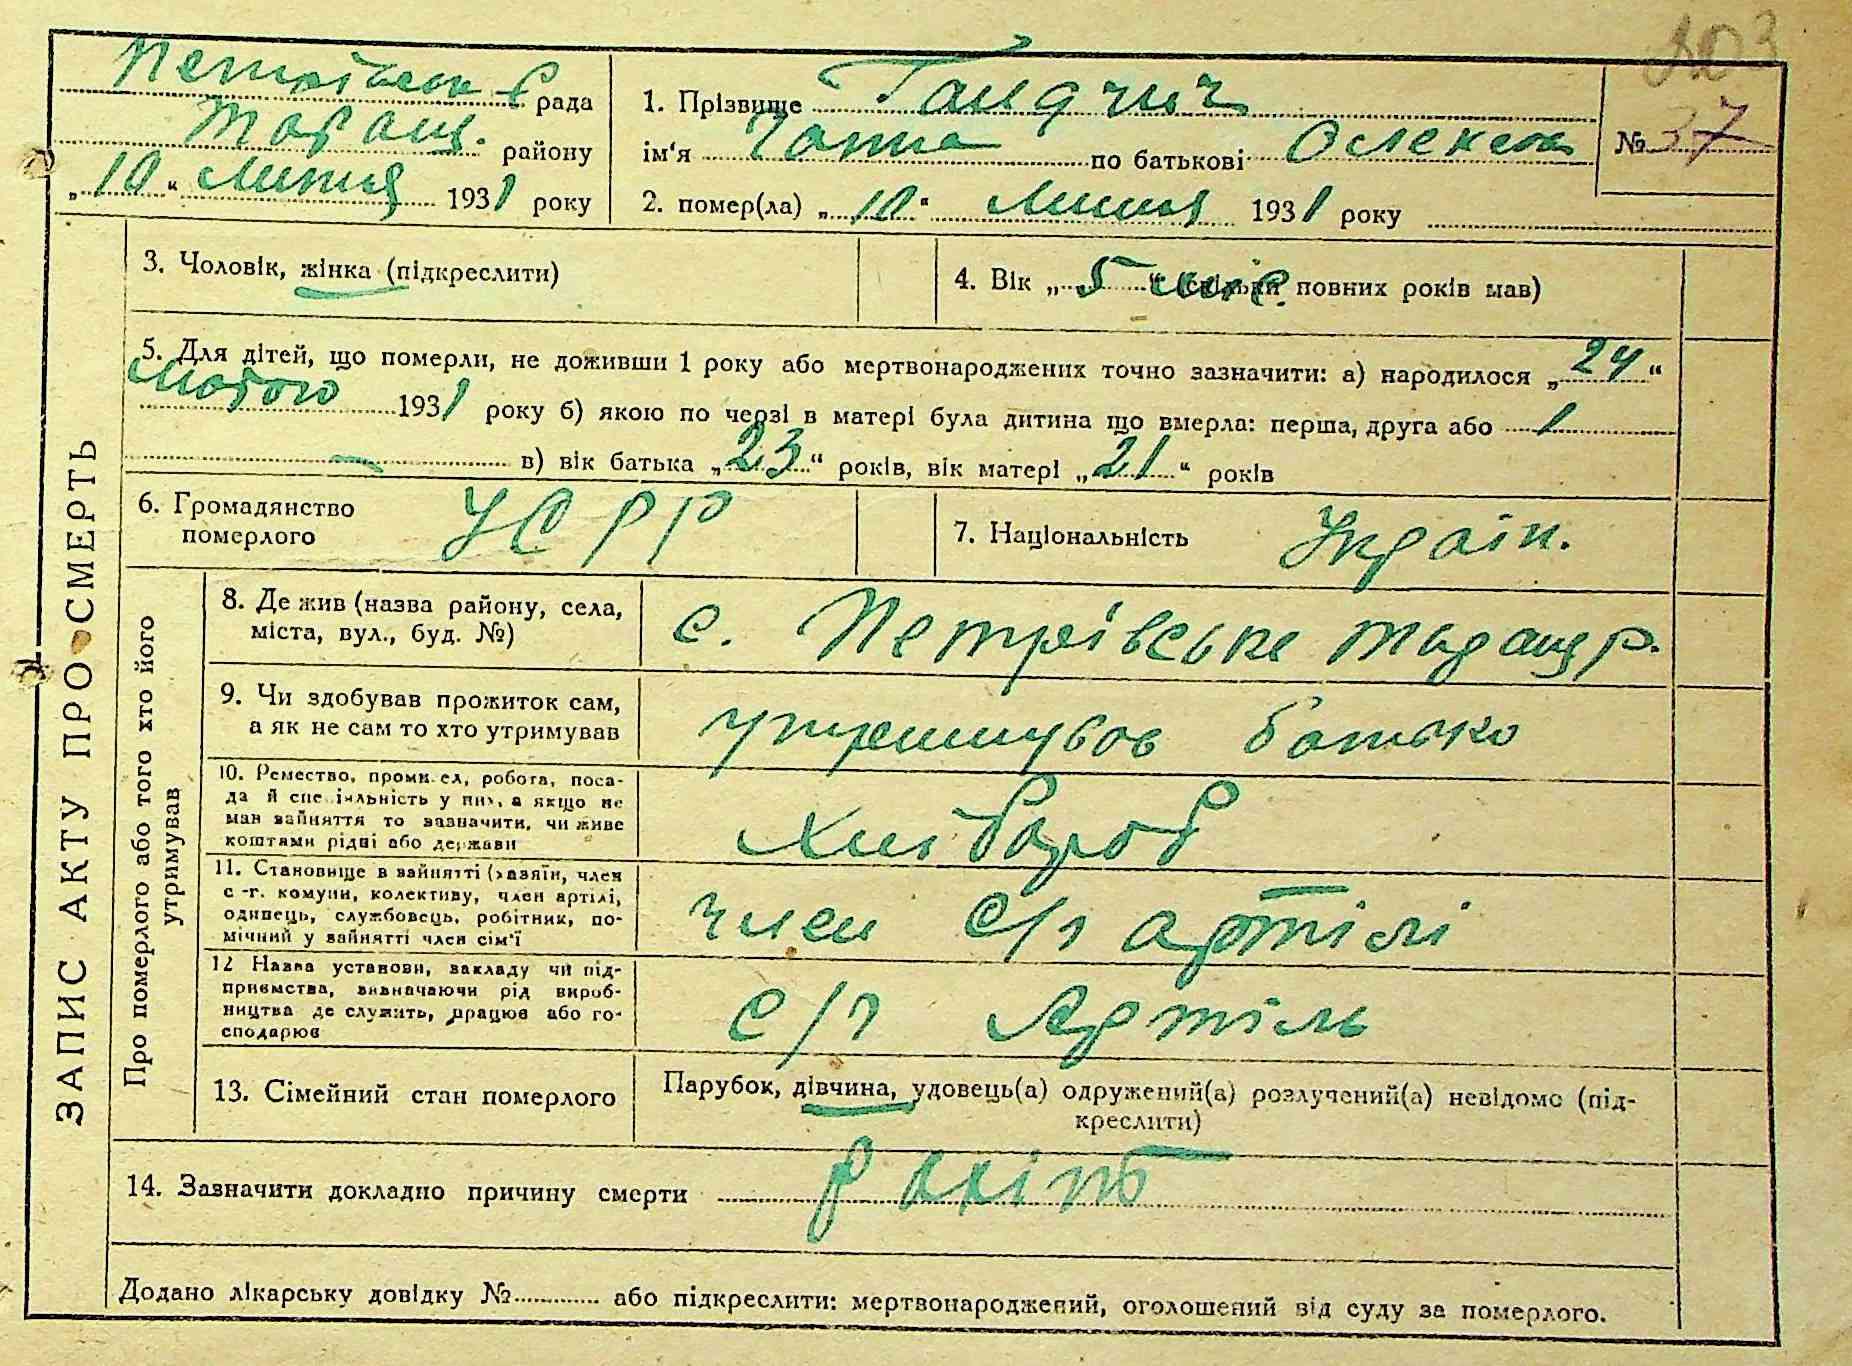 203
Петрівськ С рада
Таращ. району
„10“ Липня 1931 року
1. Прізвище Гандчич
ім‘я Ганна по батькові Олексєв
2. помер(ла) „10“ Липня 1931 року
№ 37
3. Чоловік, жінка (підкреслити)
4. Вік „5 міс.“ (скільки повних років мав)
5. Для дітей, що померли, не доживши 1 року або мертвонароджених точно зазначити: а) народилося „24“
Лютого 1931 року б) якою по черзі в матері була дитина що вмерла: перша, друга або 1
— в) вік батька „23“ років, вік матері „21“ років
6. Громадянство
померлого
УСРР
7. Національність Україн.
ЗАПИС АКТУ ПРО СМЕРТЬ
Про померлого або того хто його
утримував
8. Де жив (назва району, села,
міста, вул., буд. №)
с. Петрівське Таращ р.
9. Чи здобував прожиток сам,
а як не сам то хто утримував
утримував батько
10. Ремество, промисел, робота, поса-
да й спеціяльність у них, а якщо не
мав зайняття то зазначити, чи живе
коштами рідні або держави
Хлібороб
11. Становище в зайнятті (хазяїн, член
с.-г. комуни, колективу, член артілі,
одинець, службовець, робітник, по-
мічний у зайнятті член сім‘ї
член с/г артілі
12 Назва установи, закладу чи під-
приємства, визначаючи рід вироб-
ництва де служить, працює або го-
сподарює
с/г Артіль
13. Сімейний стан померлого
Парубок, дівчина, удовець(а) одружений(а) розлучений(а) невідомо (під-
креслити)
14. Зазначити докладно причину смерти рахіт
Додано лікарську довідку № або підкреслити: мертвонароджений, оголошений від суду за померлого.